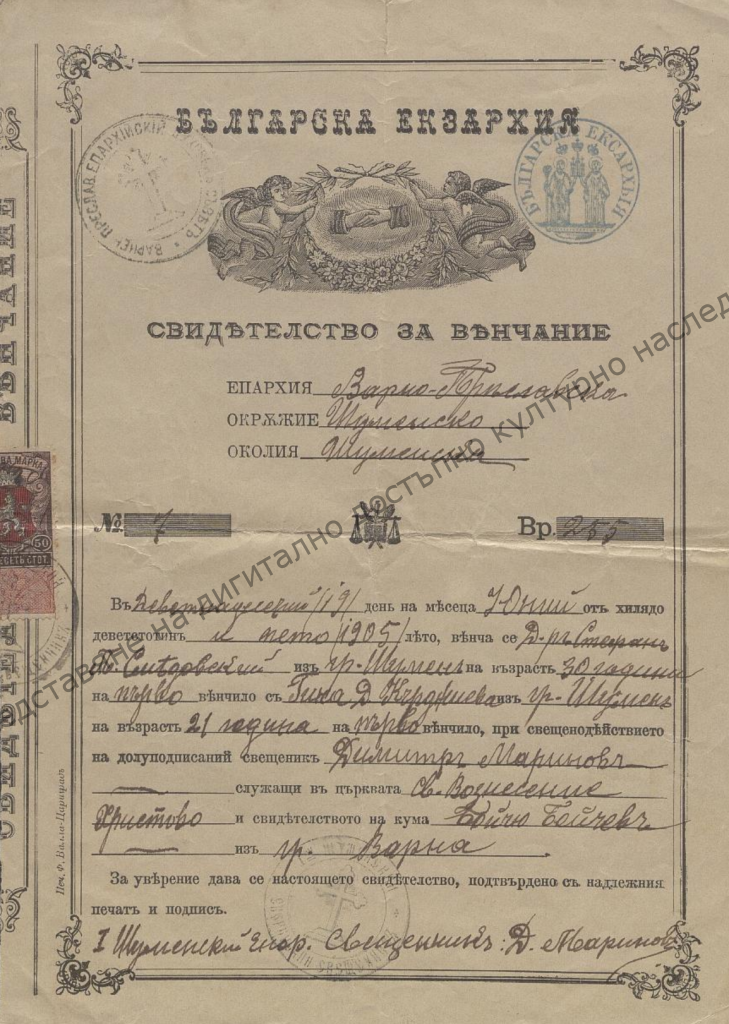 БЪЛГАРСКА ЕКЗАРХИЯ
ВАРНЕН. ПРЕСЛАВ. ЕПАРХІЙСКІЙ
БЪЛГАРСКА ЕКСАРХІЯ
СВИДѢТЕЛСТВО ЗА ВѢНЧАНИЕ
ЕПАРХИЯ Варно-Прѣславска
ОКРѪЖИЕ Шуменско
ОКОЛИЯ Шуменска
№ 7 Вр. 255
Въ Деветнадесетий /19/ день на мѣсеца Юний отъ хилядо
деветстотинъ и пето /1905/ лѣто, вѣнча се Д-ръ Стефанъ
изъ гр. Шуменъ на възрасть 30 години
на първо вѣнчило съ Гина Д. изъ гр. Шуменъ
на възрасть 21 година на първо вѣнчило, при свещенодѣйствието
на долуподписаний свещеникъ Димитръ Мариновъ
служащи въ църквата Св. Вознесение
Христово и свидѣтелството на кума Бойчо Бойчевъ
изъ гр. Варна.
За увѣрение дава се настоящето свидѣтелство, подтвърдено съ надлежния
печатъ и подпись.
I Шуменский енор. Свещенникъ: Д. Мариновъ
ВѢНЧАНИЕ
50
Печ. Ф. Валло-Цариградъ
представяне на дигитално достъпно културно наслед